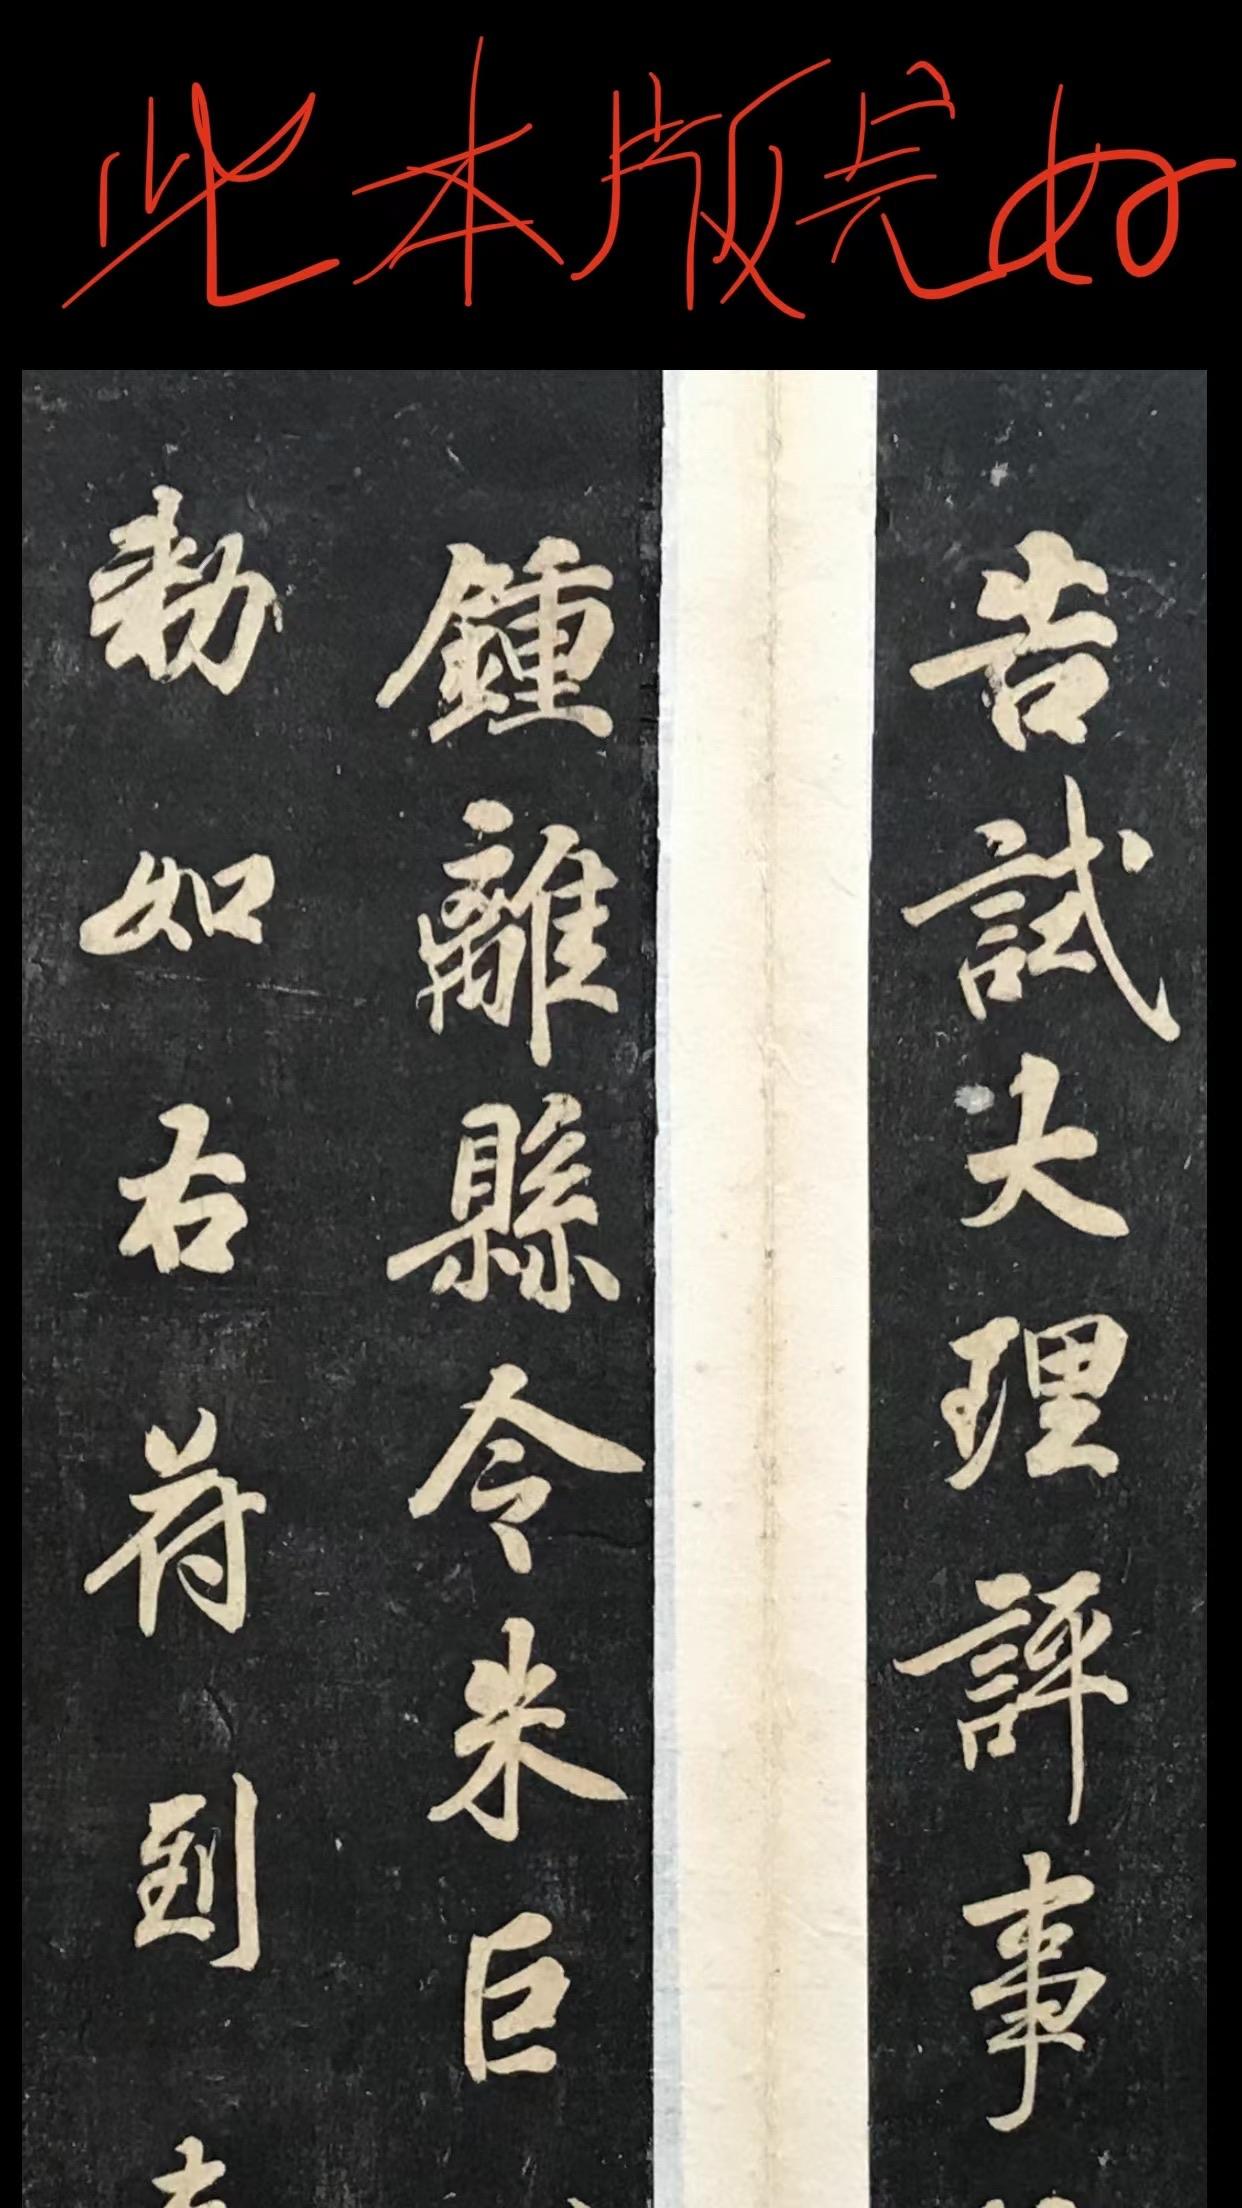 此本版完好
告試大理評事
鍾離縣令朱巨
勑如右符到